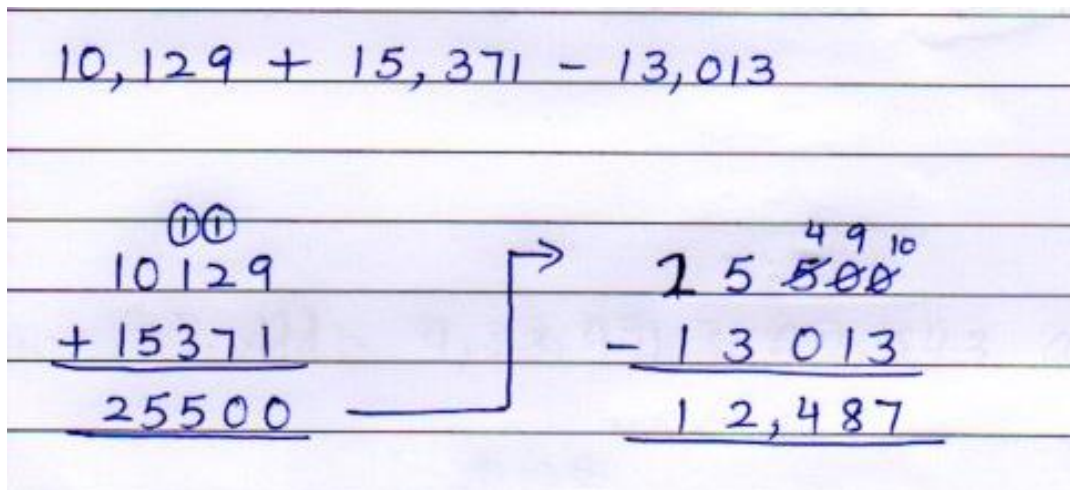 10,129 + 15,371 - 13,013
①①
10129
+ 15371
25500
4 9 10
25500
- 13013
12,487